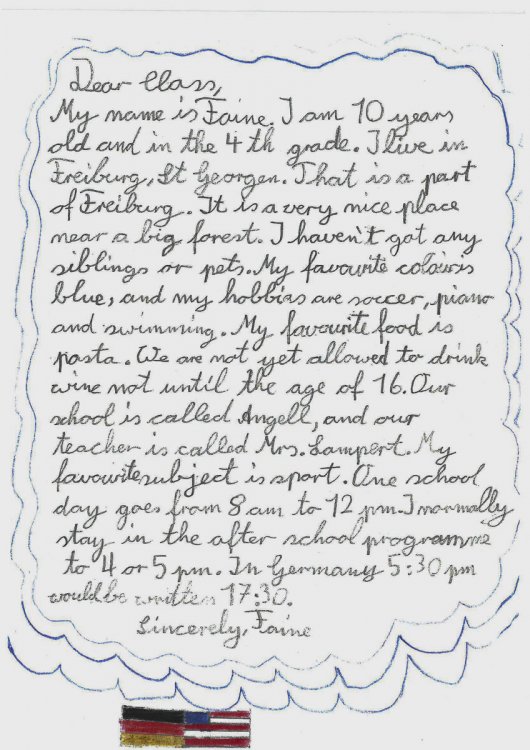 Dear Class,
My name is Faine. I am 10 years
old and in the 4 th grade. I live in
Freiburg, St Georgen. That is a part
of Freiburg. It is a very nice place
near a big forest. I haven't got any
siblings or pets. My favourite colour is
blue, and my hobbies are soccer, piano
and swimming. My favourite food is
pasta. We are not yet allowed to drink
wine not until the age of 16. Our
school is called Angell, and our
teacher is called Mrs. Lampert. My
favourite subject is sport. One school
day goes from 8 am to 12 pm. I normally
stay in the after school programme
to 4 or 5 pm. In Germany 5:30 pm
would be written 17:30.
Sincerely, Faine